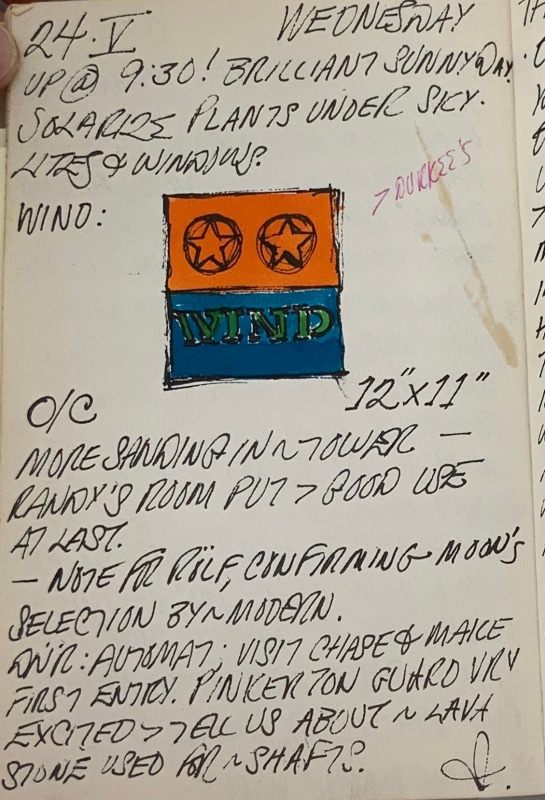 24·V WEDNESDAY
UP @ 9.30! BRILLIANT SUNNY DAY.
SOLARIZE PLANTS UNDER SKY-
LITES & WINDOWS.
> DURKEE'S
WIND:
WIND
O/C 12"x11"
MORE SANDING IN ~ TOWER —
RANDY'S ROOM PUT > GOOD USE
AT LAST.
— NOTE FOR ROLF, CONFIRMING MOON'S
SELECTION BY ~ MODERN.
DN'R: AUTOMAT; VISIT CHAPE & MAKE
FIRST ENTRY. PINKERTON GUARD VRY
EXCITED > TELL US ABOUT ~ LAVA
STONE USED FOR ~ SHAFTS.